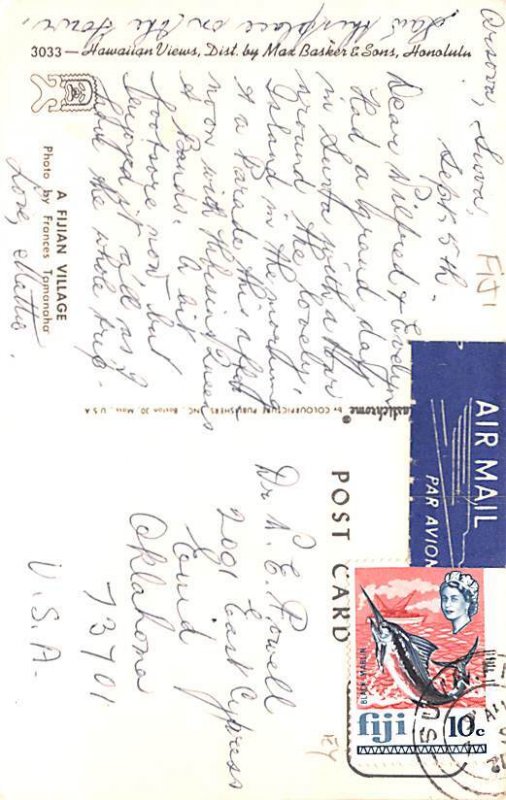 Saw this place on the tour.
3033 — Hawaiian Views, Dist. by Max Basker & Sons, Honolulu
Suva,
Sept. 5th.
FIJI
Dear Wilfred & Evelyn
Had a grand day
in Suva with a tour
around the lovely
Island in the morning
& a Parade this after
noon with the Queens
& Bands. A bit
footsore now but
enjoyed it all as I
the whole trip.
Love, Mattie.
A FIJIAN VILLAGE
Photo by Frances Tamanaha
by COLOURPICTURE PUBLISHERS, INC. Boston 30, Mass., U.S.A.
astichrome®
POST CARD
AIR MAIL
PAR AVION
Dr. E. Powell
2001 East Cypress
Enid
Oklahoma
73701
U.S.A.
BLACK MARLIN
fiji 10c
SUVA